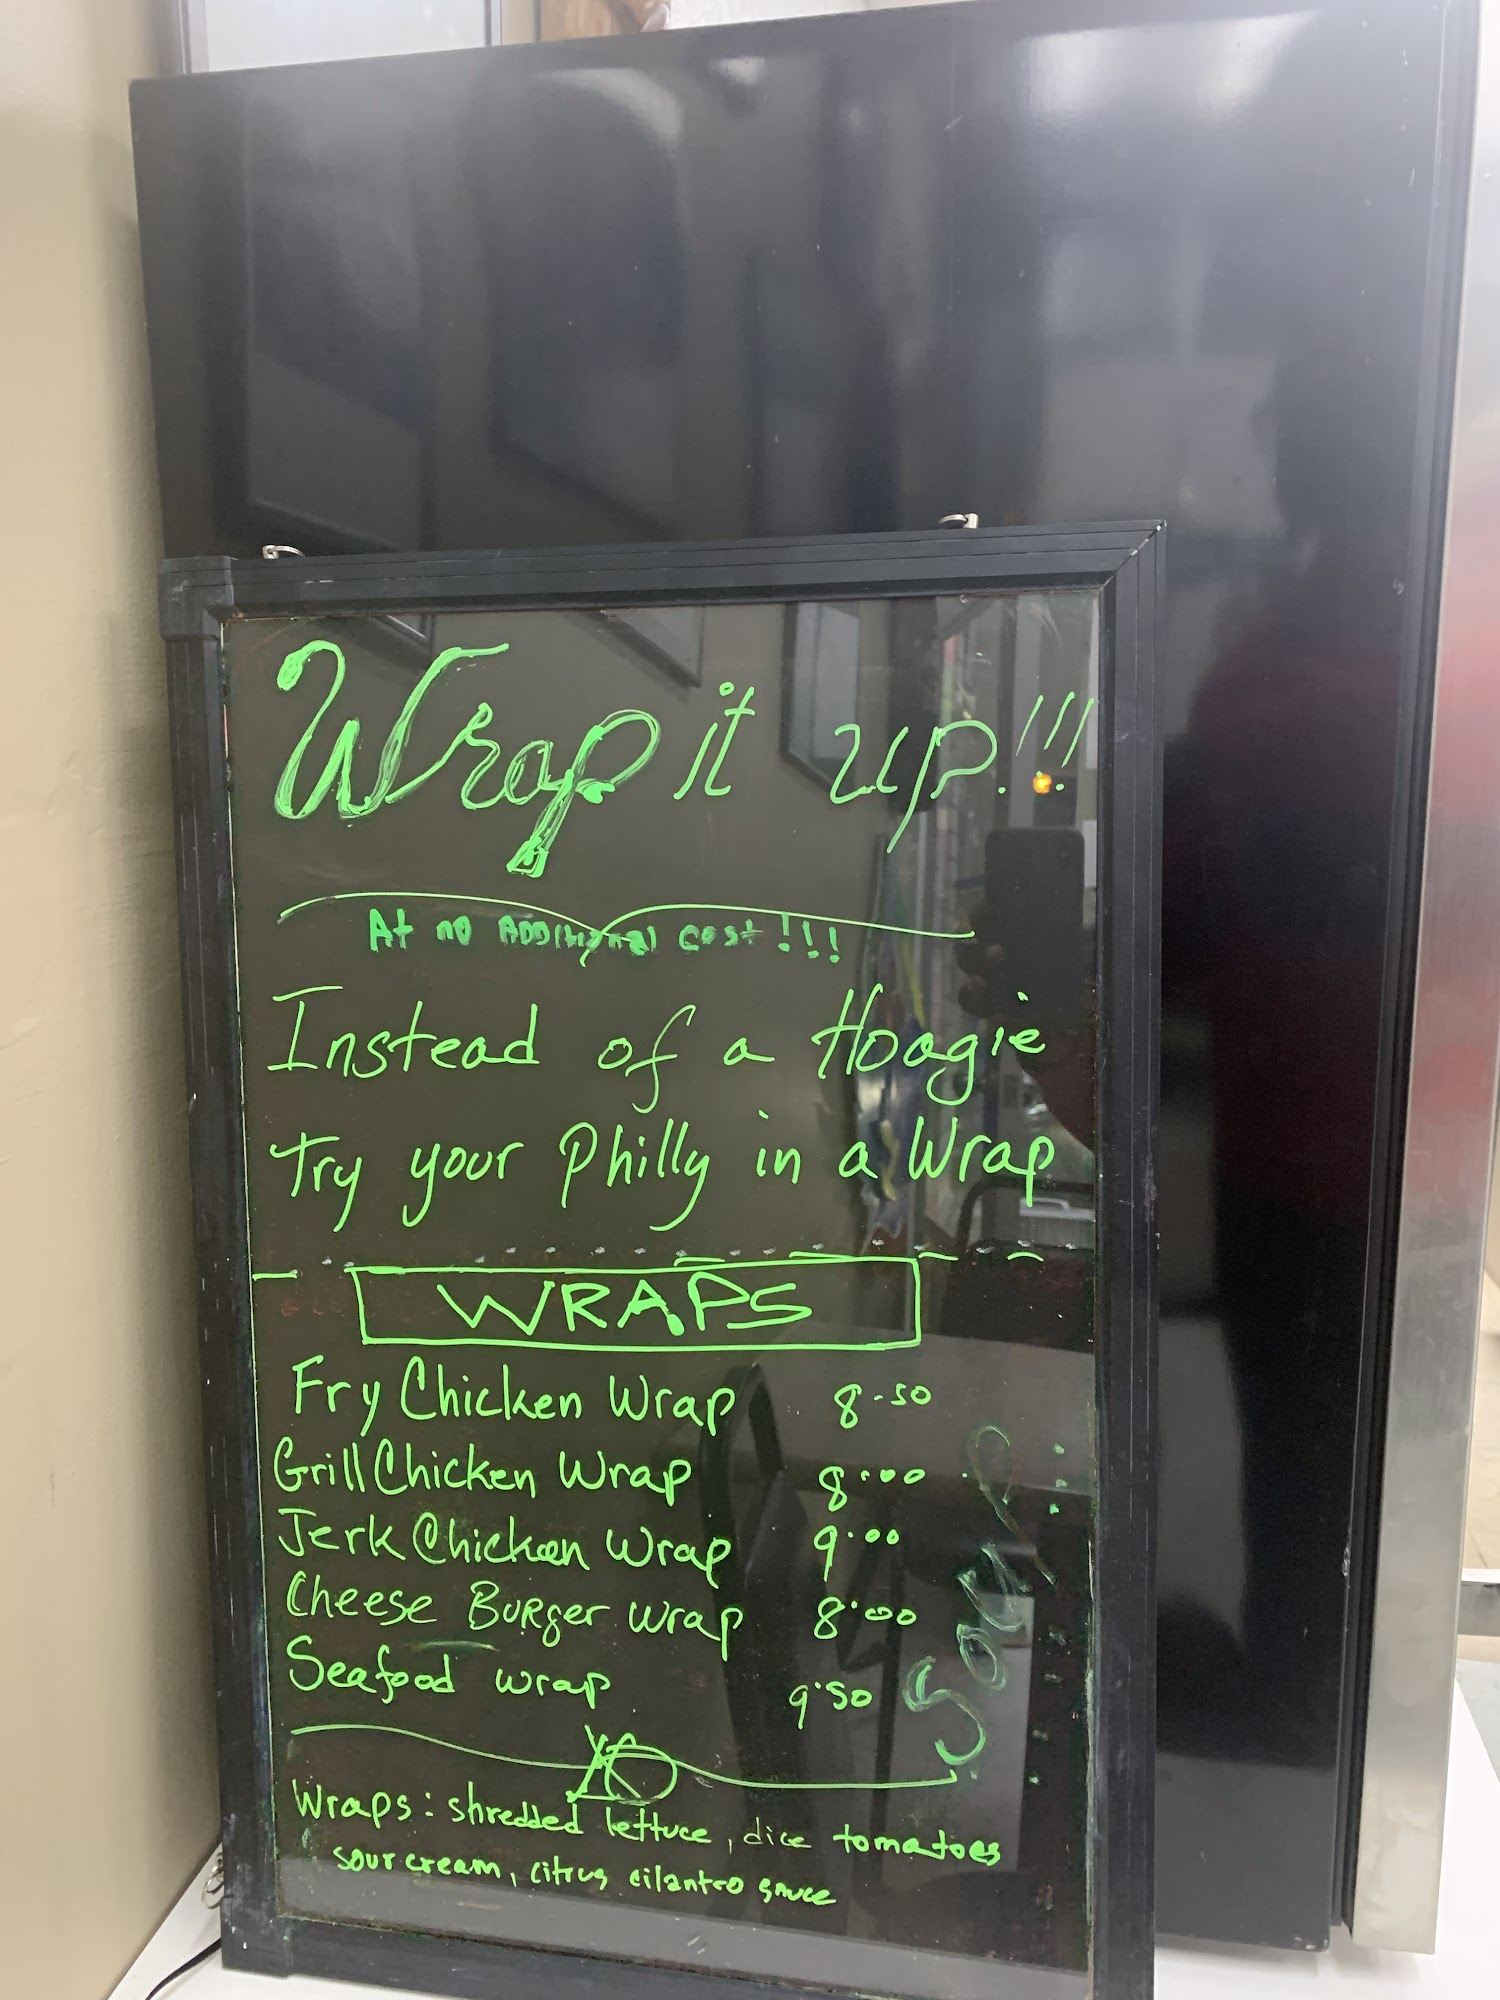 Wrap it up!!!
At no Additional cost!!!
Instead of a Hoagie
Try your Philly in a Wrap
WRAPS
Fry Chicken Wrap 8.50
Grill Chicken Wrap 8.00
Jerk Chicken Wrap 9.00
Cheese Burger wrap 8.00
Seafood wrap 9.50
Soup:
Wraps: shredded lettuce, dice tomatoes
sour cream, citrus cilantro sauce